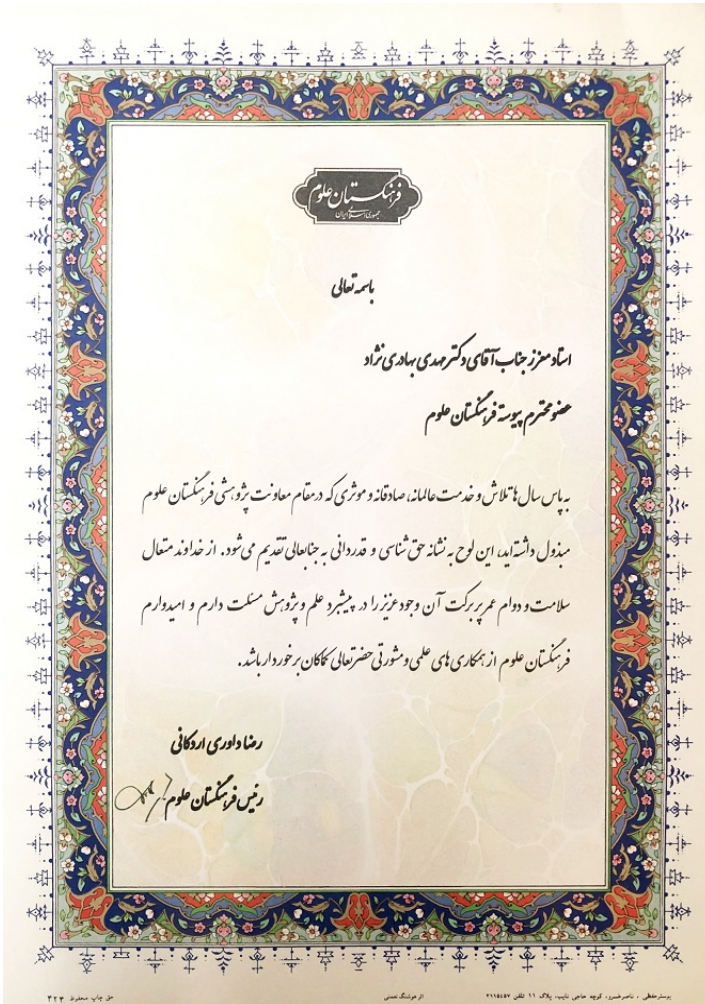 فرهنگستان علوم
جمهوری اسلامی ایران
باسمه تعالی
استاد معزز جناب آقای دکتر مهدی بهادری نژاد
عضو محترم پیوسته فرهنگستان علوم
به پاس سال ها تلاش و خدمت عالمانه، صادقانه و موثری که در مقام معاونت پژوهشی فرهنگستان علوم
مبذول داشته اید، این لوح به نشانه حق شناسی و قدردانی به جنابعالی تقدیم می شود. از خداوند متعال
سلامت و دوام عمر پر برکت آن وجود عزیز را در پیشبرد علم و پژوهش مسئلت دارم و امیدوارم
فرهنگستان علوم از همکاری های علمی و مشورتی حضرتعالی کماکان برخوردار باشد.
رضا داوری اردکانی
رئیس فرهنگستان علوم
پوستر حافظی ، ناصرخسرو، کوچه حاجی نایب، پلاک ۱۱ تلفن ۳۱۱۵۴۵۷
اثر هوشنگ
حق چاپ محفوظ ۴۲۴